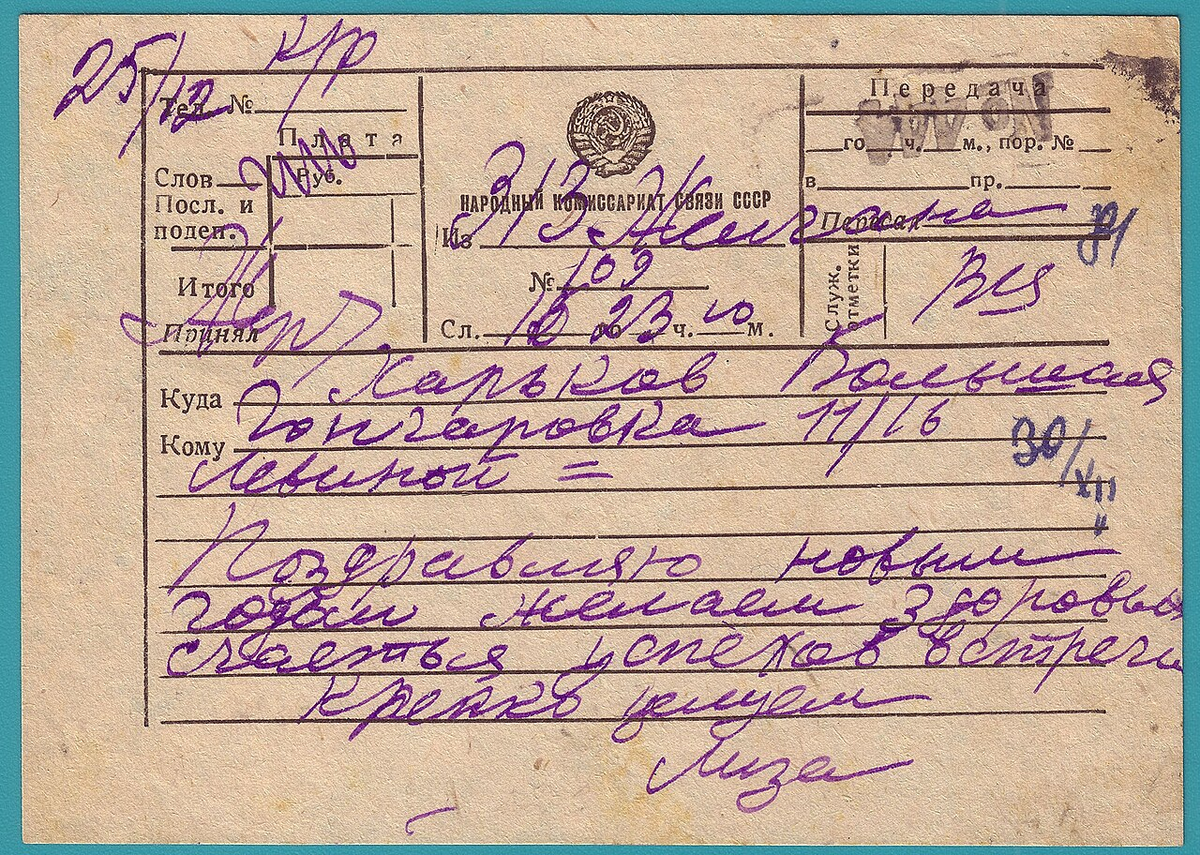 25/12 к/р
Тел. №
Плата
Руб.
Слов
Посл. и
подеп.
Итого
Принял
НАРОДНЫЙ КОМИССАРИАТ СВЯЗИ СССР
Из 313
№ 109
Сл. го 23 ч. 10 м.
Передача
го ч. м., пор. №
в пр.
Передал
Служ.
отметки
Куда Харьков Большая
Кому Гончаровка 11/16
Левиной =
30/XII
Поздравляю новым
годом желаем здоровья
счастья успехов встречи
крепко целуем
Лиза